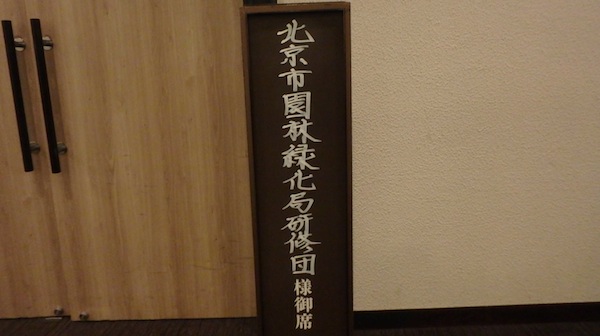 北京市園林緑化局研修団様御席